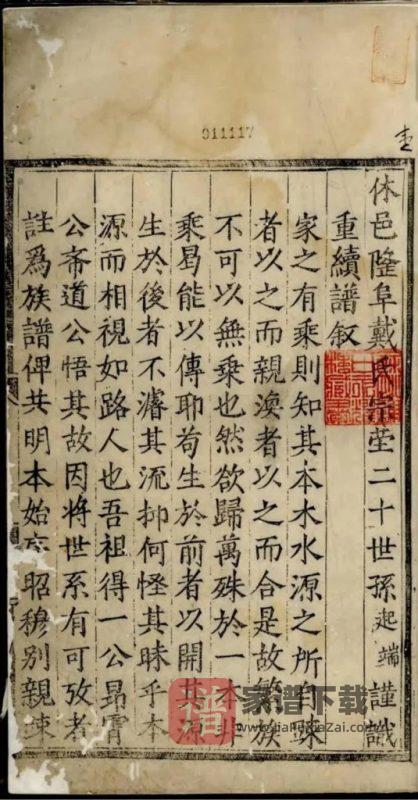 011117
休邑隆阜戴氏宗茔二十世孫起端謹識
重續譜叙
家之有乘則知其本木水源之所自踈
者以之而親渙者以之而合是故
族
不可以無乘也然欲歸萬殊於一本非
乘曷能以傳耶苟生於前者以開其源
生於後者不濬其流抑何怪其昧乎本
源而相視如路人也吾祖得一公昴霄
公斋道公悟其故因将世系有可攷者
註爲族譜俾共明本始
昭穆别親踈
譜 家谱下载
www.jiaPuXiaZai.com